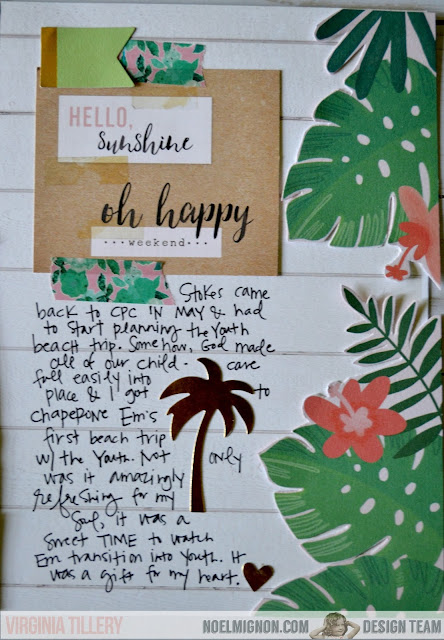 HELLO,
sunshine
oh happy
...weekend...
Stokes came
back to CPC IN MAY & had
to start planning the Youth
beach trip. Somehow, God made
all of our child- care
fall easily into
place & I got to
chaperone Em's
first beach trip
w/ the Youth. Not only
was it amazingly
refreshing for my
soul, it was a
sweet TIME to watch
Em transition into Youth. It
was a gift for my heart.
VIRGINIA TILLERY NOELMIGNON.COM DESIGN TEAM